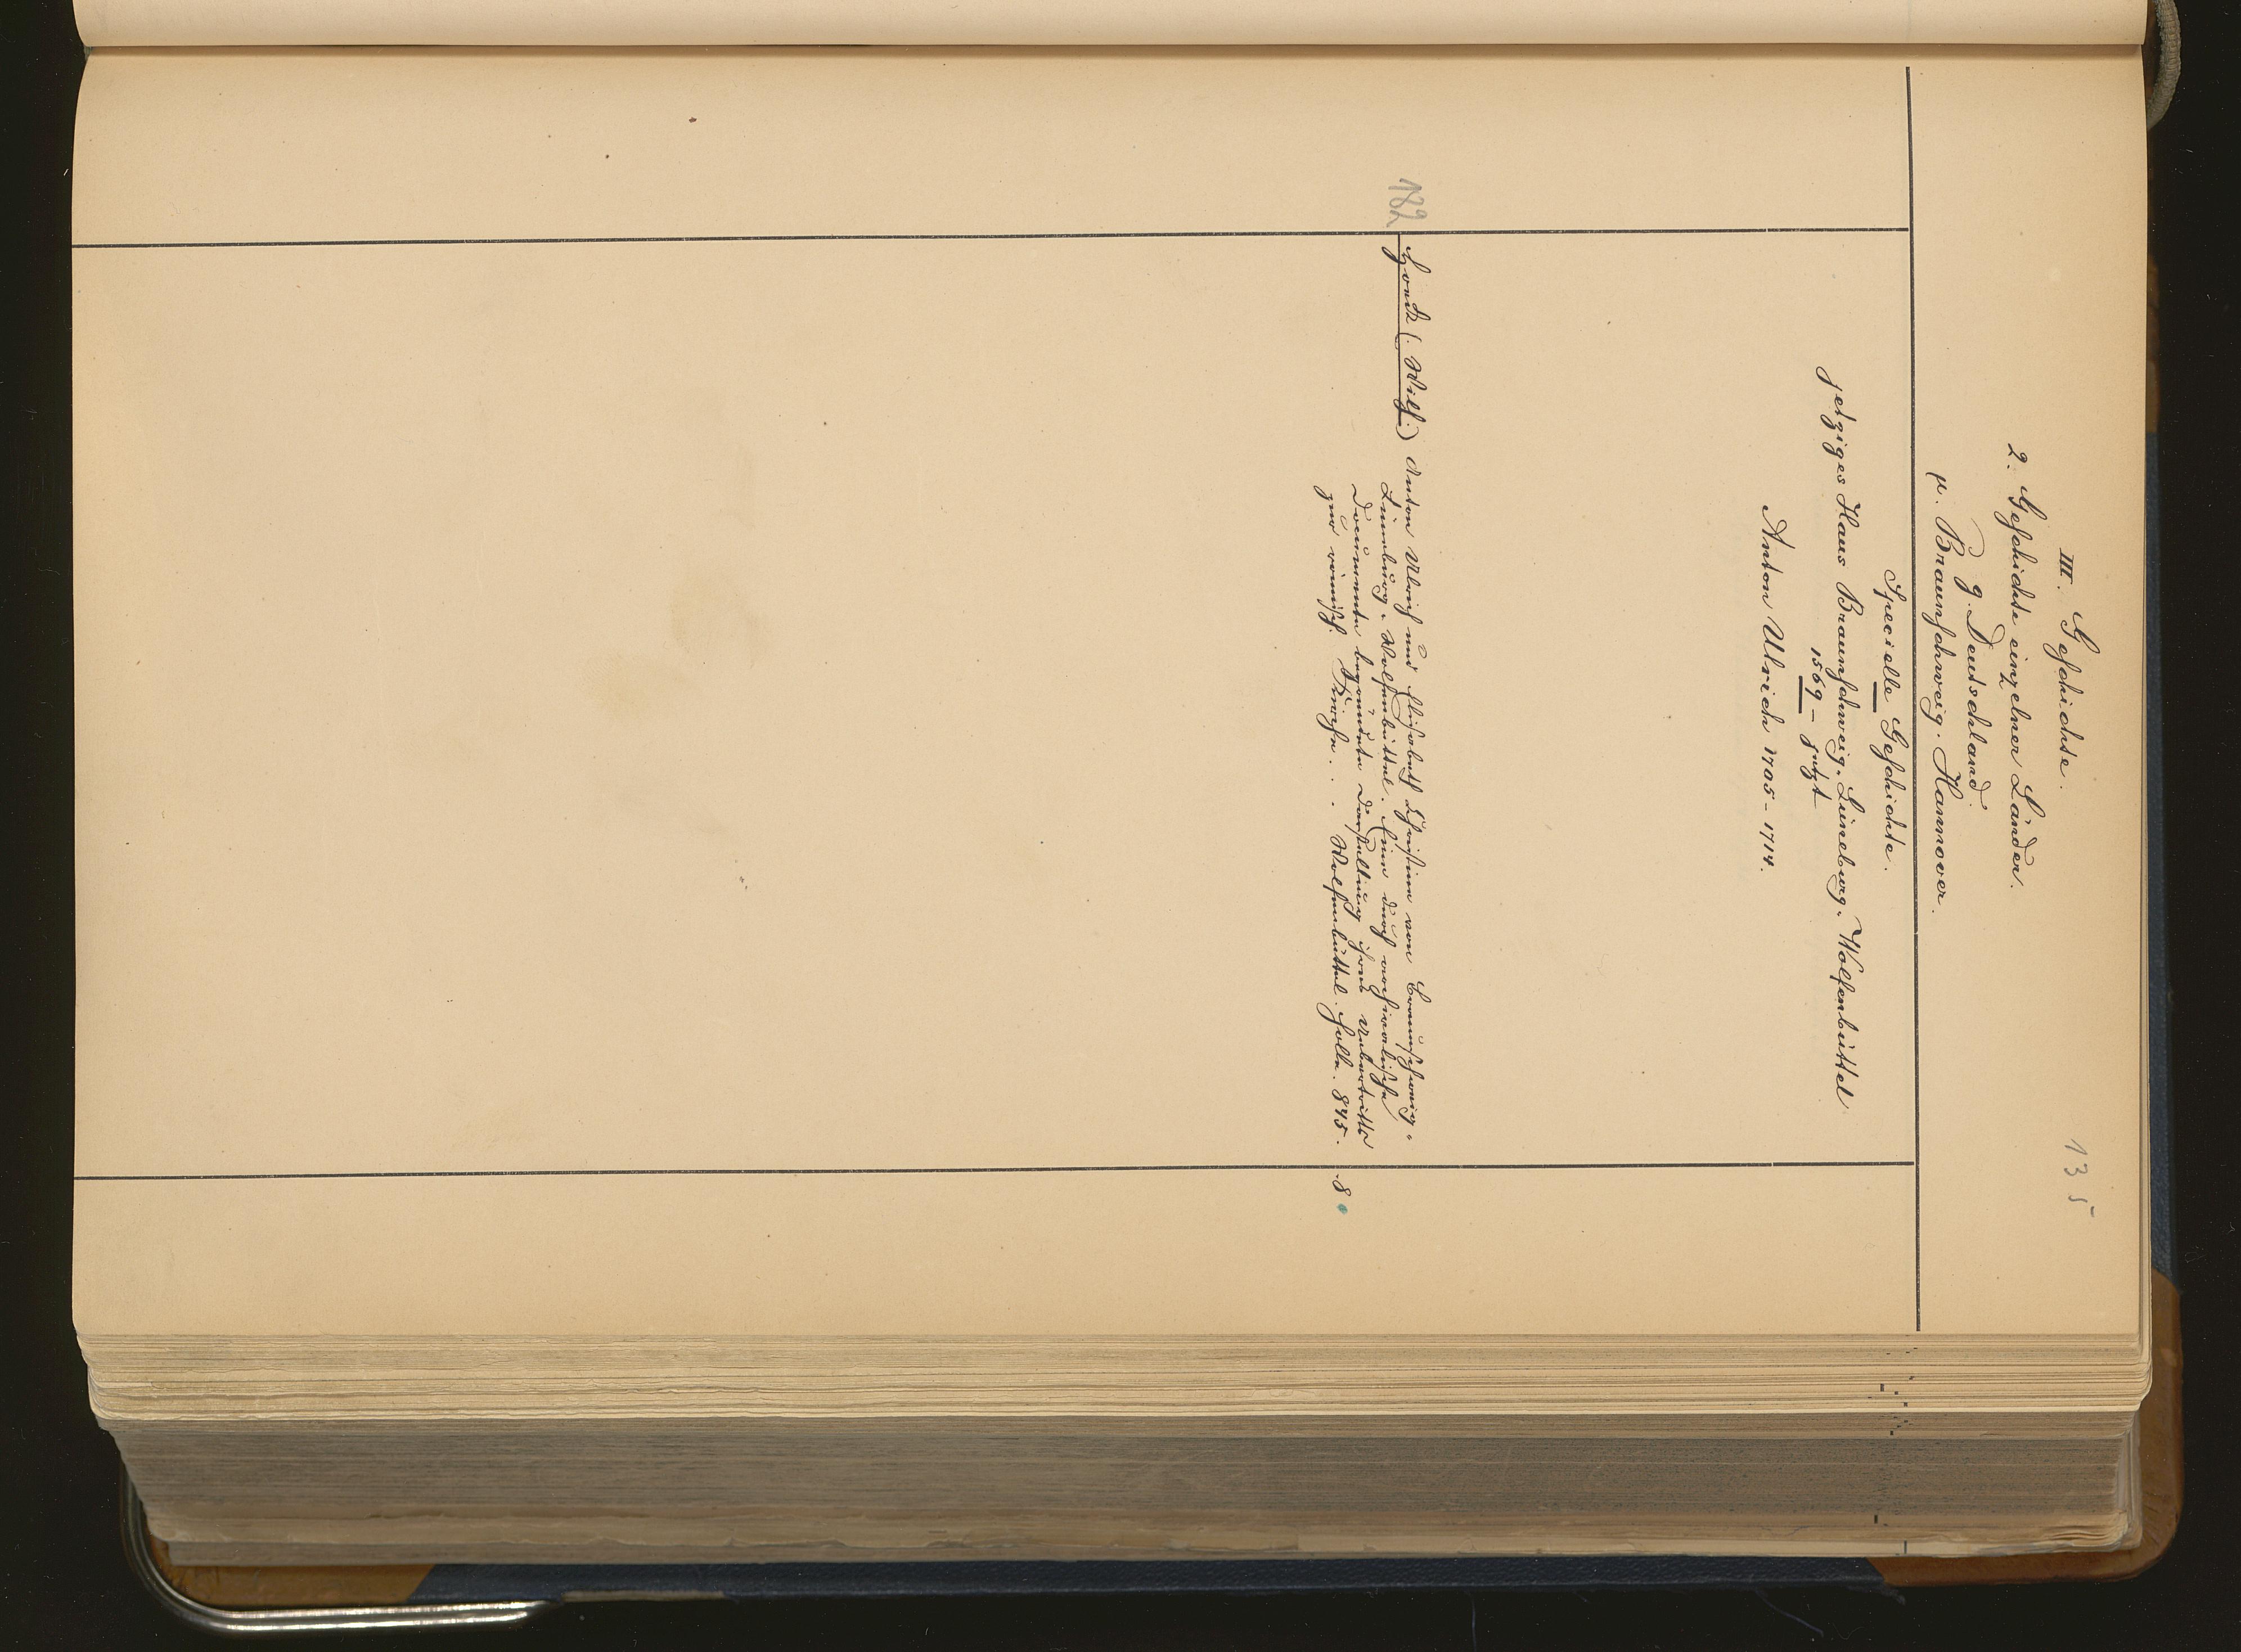 135
III. Geschichte.
2. Geschichte einzelner Länder.
g. Deutschland.
µ. Braunschweig. Hannover.
Specielle Geschichte.
jetziges Haus Braunschweig. Lüneburg. Wolfenbüttel
1569 – jetzt
Anton Ulrich 1705–1714.
182 Hoeck (. Wilh.) Anton Ulrich und Elisabeth Christine von Braunschweig-
Lüneburg. Wolfenbüttel. Eine durch archivalische
Documente begründete Darstellung ihres Uebertritts
zur römisch. Kirche. . . Wolfenbüttel. Holle. 845. 8